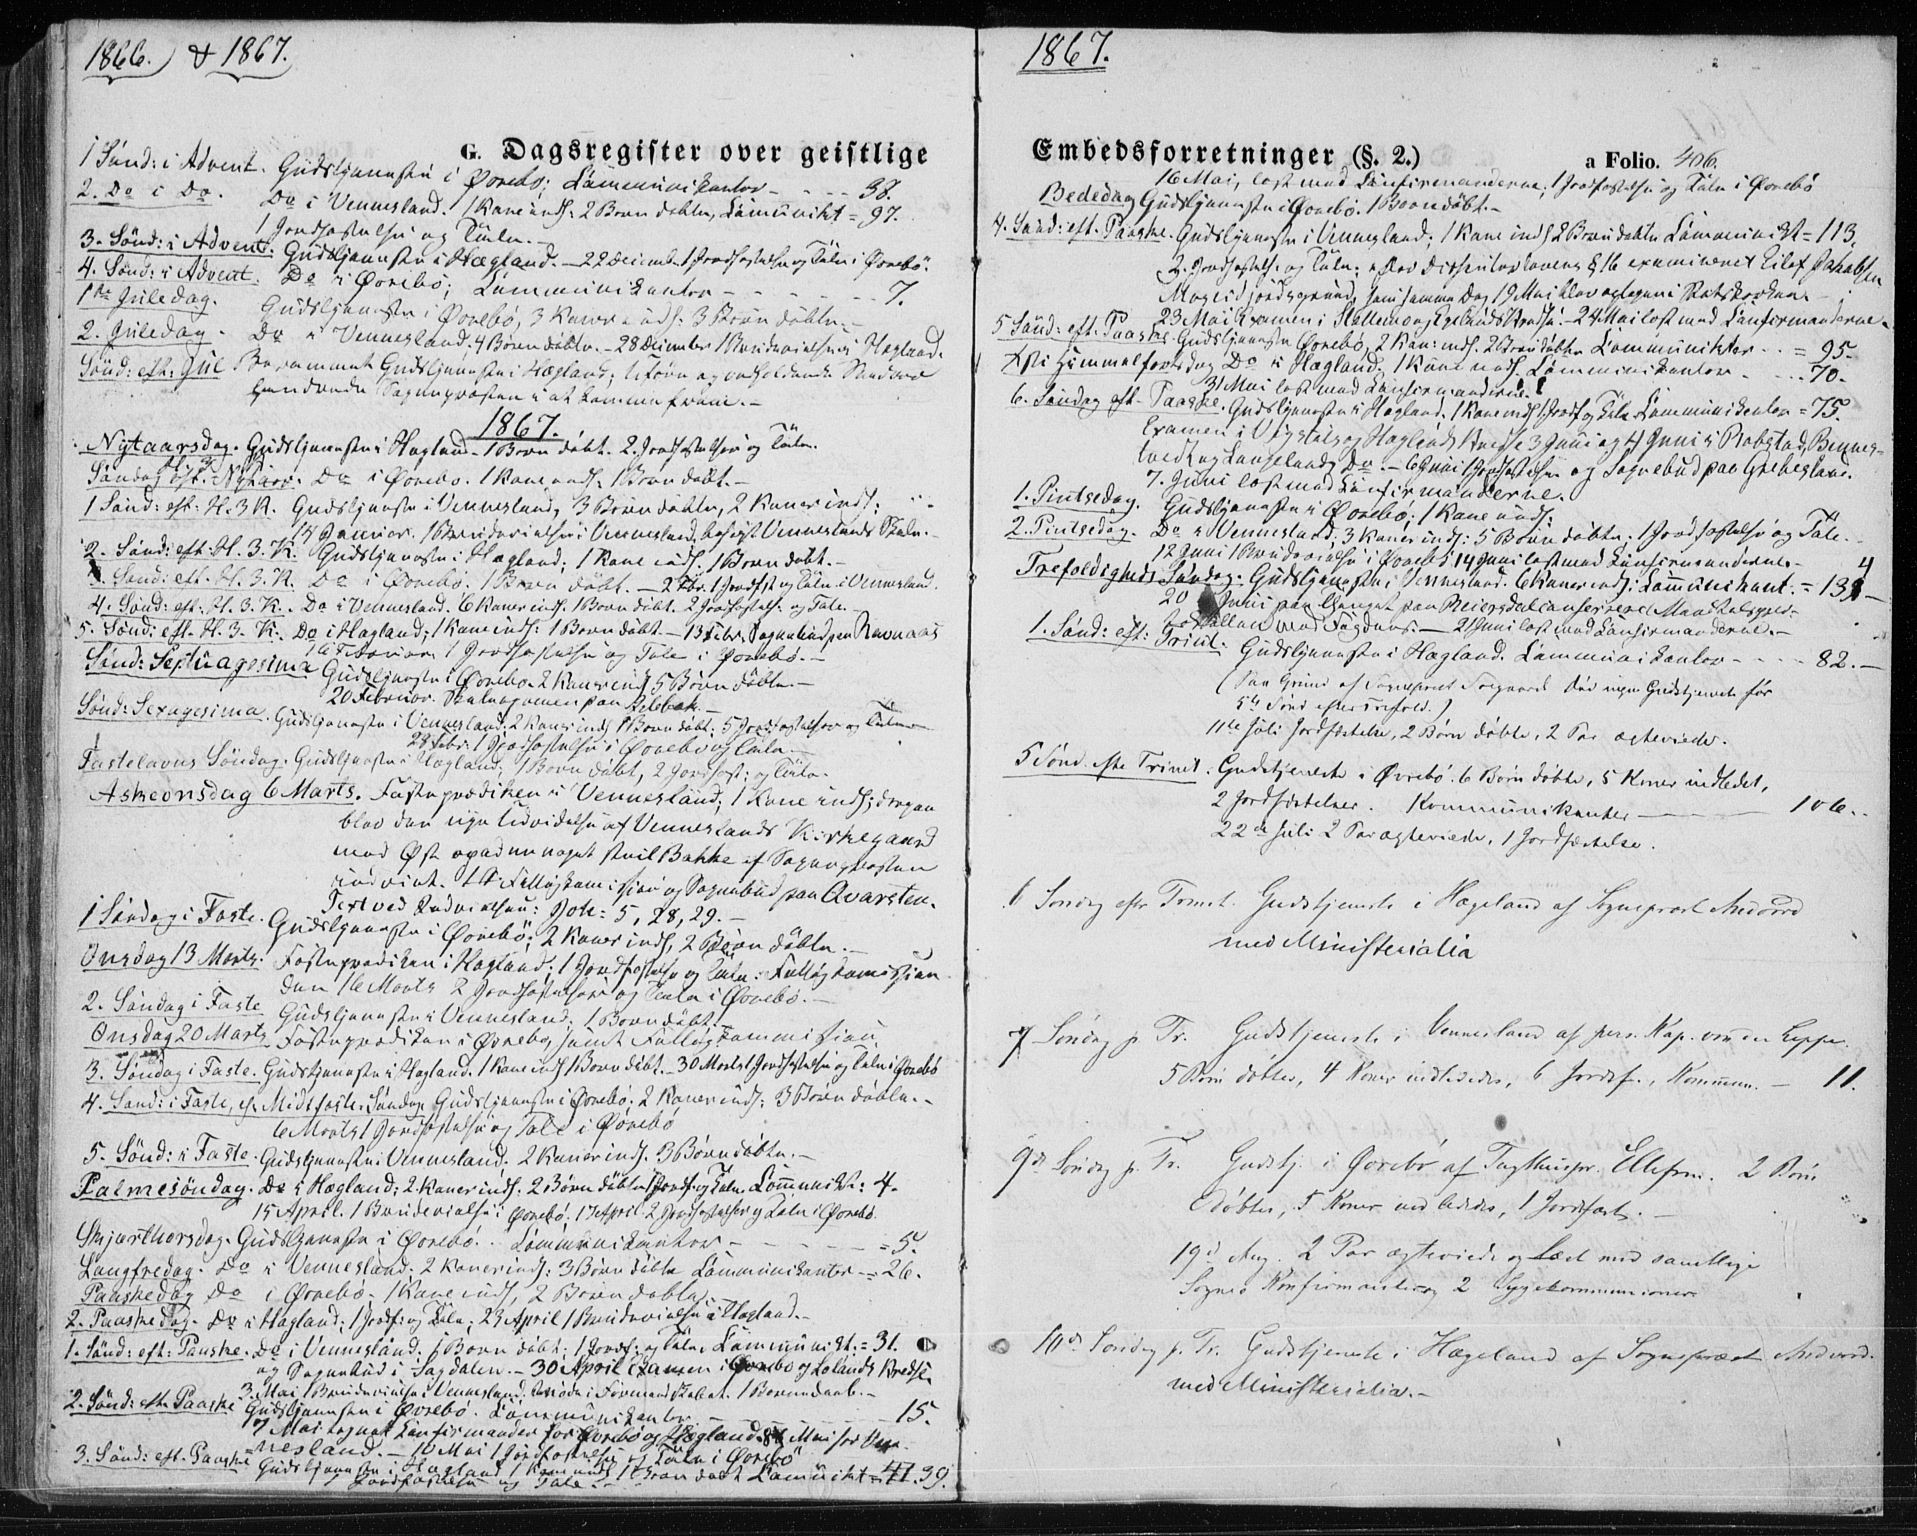 1866. & 1867.
G. Dagsregister over geistlige
1 Sönd: i Advent. Gudstjeneste i Øvrebö; Communikanter - - - - 38.
2. Do i Do. Do i Vennesland. 1 Kone indl: 2 Børn döbte, Communikt = 97.
1 Jordfæstelse og Tale.-
3. Sönd: i Advent. Gudstjeneste i Hægland. - 22 Decemb. 1 Jordfæstelse og Tale i Øvrebö.
4. Sönd: i Advent. Do i Øvrebö; Communikanter - - - - - - 7.
1ste Juledag. Gudstjeneste i Øvrebö, 3 Koner indl: 3 Børn döbte.-
2. Juledag. Do i Vennesland. 4 Børn döbte. - 28 December 1 Brudevielse i Hægland.
Sönd: eft: Jul Berammet Gudstjeneste i Hægland;
Sognepresten i at komme frem.-
1867.
Nytaarsdag. Gudstjeneste i Hægland - 1 Barn döbt. 2 Jordfæstelser og Tale.
Söndag eft. Nytaar. Do i Øvrebo. 1 Kone indl. 1 Barn döbt.-
1 Sönd: eft: H. 3 K. Gudstjeneste i Vennesland, 3 Børn döbte, 2 Koner indl:
Januar. 1 Brudevielse i Vennesland, besøgt Venneslands Skole.-
2. Sönd: eft: H. 3. K. Gudstjeneste i Hægland; 1 Kone indl. 1 Barn döbt.-
Sönd: eft. H. 3. K. Do i Øvrebö. 1 Barn döbt. - 2 Febr. 1 Jordfst og Tale i Vennesland.
4. Sönd: eft: H. 3. K. Do i Vennesland. 6 Koner indl. 1 Barn döbt. 2 Jordfæstels. og Tale.-
5. Sönd: eft. H. 3. K. Do i Hægland; 1 Kone indl: 1 Barn döbt - 13 Febr. Sognebud paa Ravnaas
16 Februar 1 Jordfæstelse og Tale i Øvrebö.-
Sönd: Septuagesima Gudstjeneste i Øvrebo. 2 Koner indl 5 Børn döbte.-
20 Februar. Skoleexamen paa
Sönd: Sexagesima. Gudstjeneste i Vennesland. 2 Koner indl 1 Barn döbt. 5 Jordfæstelser og Tale
28 Febr. 1 Jordfæstelse i Øvrebo og Tale.-
Fastelavns Söndag. Gudstjeneste i Hægland; 1 Barn döbt, 2 Jordfæst: og Tale.
Askeonsdag 6 Marts. Fasteprædiken i Vennesland; 1 Kone indl;
blev den nye Udvidelse af Venneslands Kirkegaard
mod Øst Bakke af Sognepresten
indviet. Fattigkommission og Sognebud paa Qvarsten.
Text ved Indvielsen: Joh: 5, 28, 29.-
1 Söndag i Faste. Gudstjeneste i Øvrebö; 2 Koner indl, 2 Børn döbte.-
Onsdag 13 Marts. Fasteprædiken i Hægland; 1 Jordfæstelse og Tale. Fattigkommission
den 16 Marts 2 Jordfæstelser og Tale i Øvrebö.-
2. Söndag i Faste Gudstjeneste i Vennesland. 1 Barn döbt.-
Onsdag 20 Marts Fasteprædiken i Øvrebø, samt Fattigkommission.
3. Söndag i Faste. Gudstjeneste i Hægland. 1 Kone indl 1 Barn döbt. - 30 Marts 1 Jordfæstelse og Tale i Øvrebö
4. Sönd: i Faste, el. Midtfaste Söndag Gudstjeneste i Øvrebö. 2 Koner indl: 3 Børn döbte.-
6 Marts 1 Jordfæstelse og Tale i Øvrebö
5. Sönd: i Faste. Gudstjeneste i Vennesland. 2 Koner indl. 3 Børn döbte.-
Palmesöndag. Do i Hægland; 2 Koner indl. 2 Børn döbte 1 Jordf. og Tale. Communikt: 4.
15 April. 1 Brudevielse i Øvrebö; 17 April 2 Jordfæstelser og Tale i Øvrebö.
Skjærthorsdag. Gudstjeneste i Øvrebö. Communikanter - - - - = 5.
Langfredag. Do i Vennesland. 2 Koner indl: 3 Børn döbte Communikanter = 26.
Paaskedag Do i Øvrebö. 1 Kone indl, 2 Børn döbte.
2. Paaskedag. Do i Hægland; 1 Jordf: og Tale; 23 April 1 Brudevielse i Hægland.-
1. Sönd: eft: Paaske. Do i Vennesland. 1 Barn döbt. 1 Jordf: og Tale. Communikt. = 31.
og Sognebud i Sagdalen. - 30 April Examen i Øvrebö og Lolands Kredse.
3 Mai 1 Brudevielse i Vennesland. Møde i Formandskabet. 1 Barnedaab.-
2. Sönd: efte Paaske Gudstjeneste i Øvrebö. Communikanter - - - - 15.
7 Mai Konfirmander for Øvrebö og Hægland. 8 Mai for Ven-
nesland. - 10 Mai 1 Jordfæstelse og Tale i Øvrebö
3. Sönd: eft. Paaske Gudstjeneste i Hægland 1 Kone indl 1 Barn döbt Communikt = 41. 39.
Jordfæstelse og Tale.-
1867.
Embedsforretninger (§. 2.)
a Folio. 406.
16 Mai, læst med Confirmanderne; 1 Jordfæstelse og Tale i Øvrebö
Bededag Gudstjeneste i Øvrebö. 1 Barn döbt.-
4. Sönd: eft. Paaske. Gudstjeneste i Vennesland; 1 Kone indl 2 Børn döbte Communikt = 113.
2. Jordfæstels: og Tale. efter Dissenterlovens § 16 examineret Eilef Jakobsen
som samme Dag 19 Mai blev optagen i Statskirken.-
23 Mai Examen i Stallemo og Kredse. - 24 Mai læst med Confirmanderne.
5 Sönd: eft. Paaske. Gudstjeneste Øvrebö, 2 Kon: indl. 2 Børn döbte Communikter = 95.
Xsti Himmelfartsdag Do i Hægland. 1 Kone indl. Communikanter - - - 70.
31 Mai læst med Confirmanderne.
6. Söndag eft. Paaske. Gudstjeneste i Hægland. 1 Kone indl 1 Jordf og Tale. Communikanter = 75.
Examen i Vigstøls og Hæglands Kredse 3 Juni og 4 Juni i Robstad, Bennes-
tvedt og Langelands Do. - 6 Juni 1 Jordfæstelse og Sognebud paa Grebesland.
7. Juni læst med Confirmanderne.
1. Pintsedag. Gudstjeneste i Øvrebö; 1 Kone indl:
2. Pintsedag. Do i Vennesland; 3 Koner indl: 5 Børn döbte. 1 Jordfæstelse og Tale.-
12 Juni 1 Brudevielse i Øvrebö 14 Juni læst med Confirmanderne.-
Trefoldigheds Söndag. Gudstjeneste i Vennesland. 6 Koner indl: Communikant. = 134 -
20 Juni paa paa Reiersdal
med Fogden. - 21 Juni læst med Confirmanderne.-
1. Sönd: eft: Trinit. Gudstjeneste i Hægland. Communikanter - - - - 82.-
(Paa Grund af Sognepræst Død ingen Gudstjeneste før
5te Sönd efter Trefold.)
11te Juli Jordfæstelse, 2 Børn döbte, 2 Par ægteviede.
5 Sönd. efte Trinit. Gudstjeneste i Øvrebö. 6 Børn döbte, 5 Koner indledet,
2 Jordfæstelser. Kommunikanter - 106.
22de Juli 2 Par ægteviede, 1 Jordfæstelse.
6 Söndag efter Trinit. Gudstjeneste i Hægeland af Sogneprest Andvord
med Ministerialia
7 Söndag p. Tr. Gudstjeneste i Vennesland af pers. Kap. von der Lippe.
5 Börn döbtes, 4 Koner indlededes, 6 Jordf., Kommun. - 11.
9de Söndag p. Tr. Gudstj. i Øvrebö af Tugthuspr. Ellefsen. 2 Börn
döbtes, 5 Koner indlededes, 1 Jordfæst.-
19d Aug. 2 Par ægteviede og Læst med samtlige
Sognes Konfirmanter og 2 Sygekommunioner
10de Söndag p. Tr. Gudstjeneste i Hægeland af Sognepræst Andvord.
med Ministerialia.-